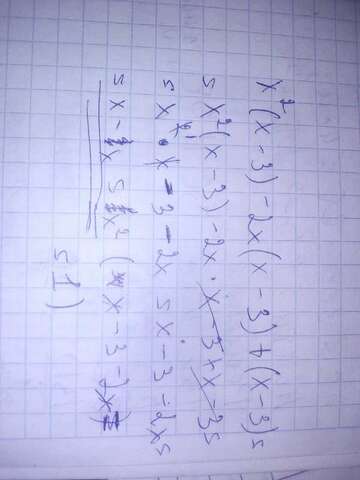 x²(x-3)-2x(x-3)+(x-3)=
= x²(x-3)-2x·x-3+x-3=
= x · x - 3 - 2x = x-3-2x=
= x - x = x² (x-3-2x)
= 1)